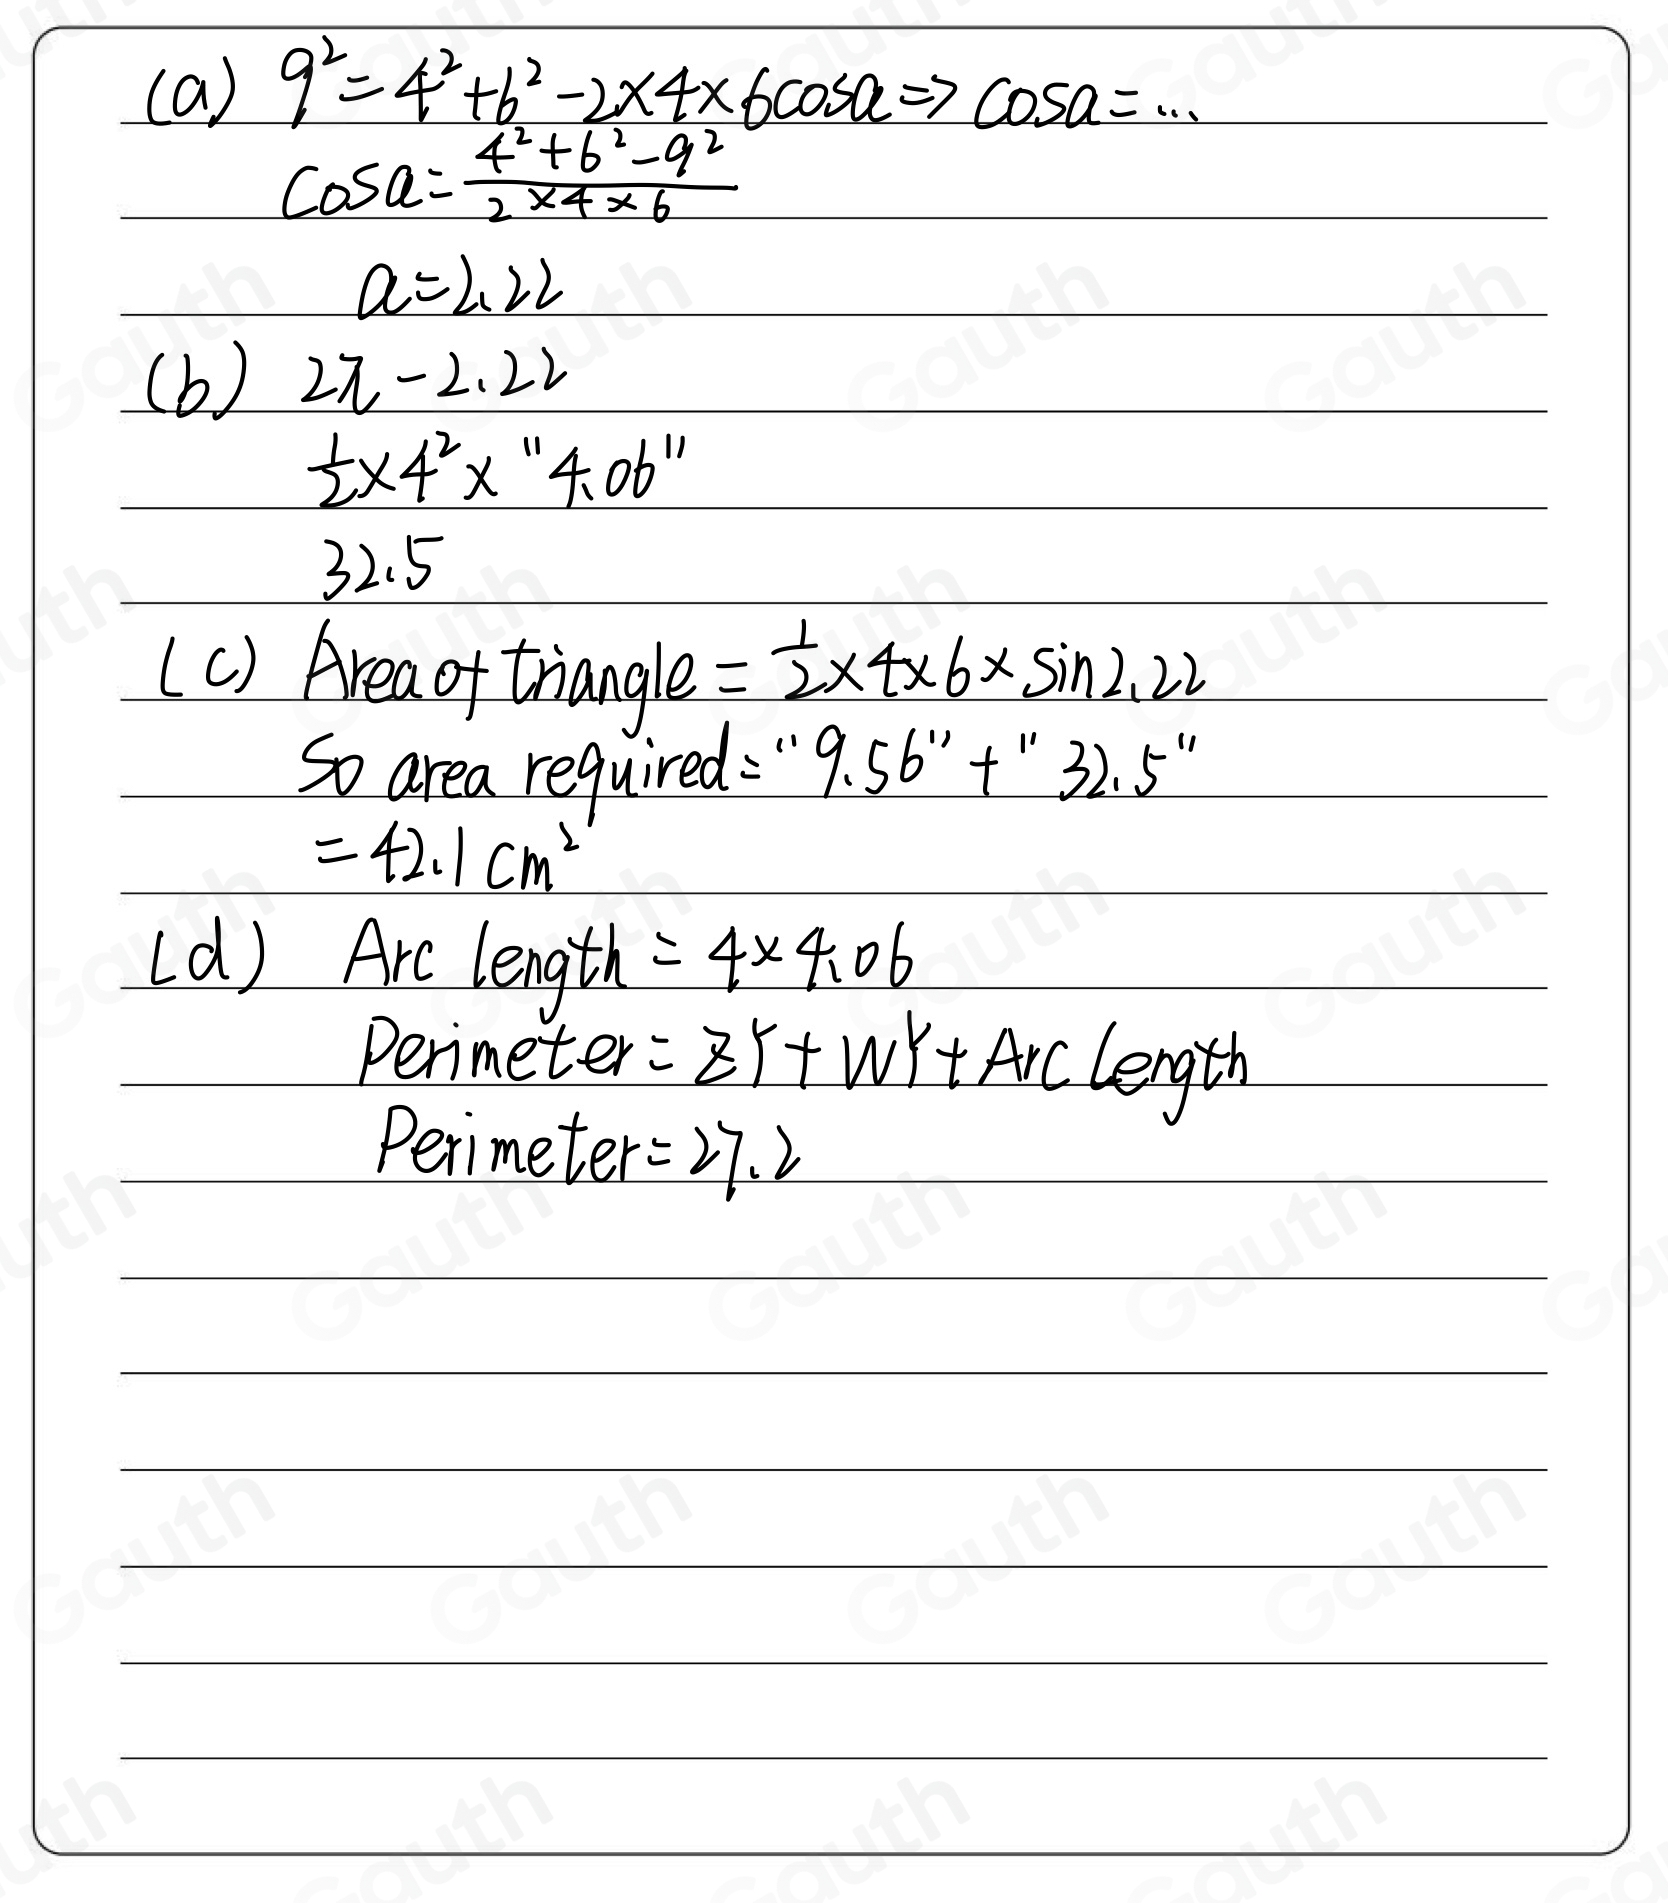 (a) 9² = 4² + 6² - 2 × 4 × 6 cos a ⇒ cos a = ...
cos a = (4² + 6² - 9²) / (2 × 4 × 6)
a = 2.22
(b) 2π - 2.22
1/2 × 4² × "4.06"
32.5
(c) Area of triangle = 1/2 × 4 × 6 × sin 2.22
So area required = "9.56" + "32.5"
= 42.1 cm²
(d) Arc length = 4 × 4.06
Perimeter = ZY + WY + Arc Length
Perimeter = 27.2